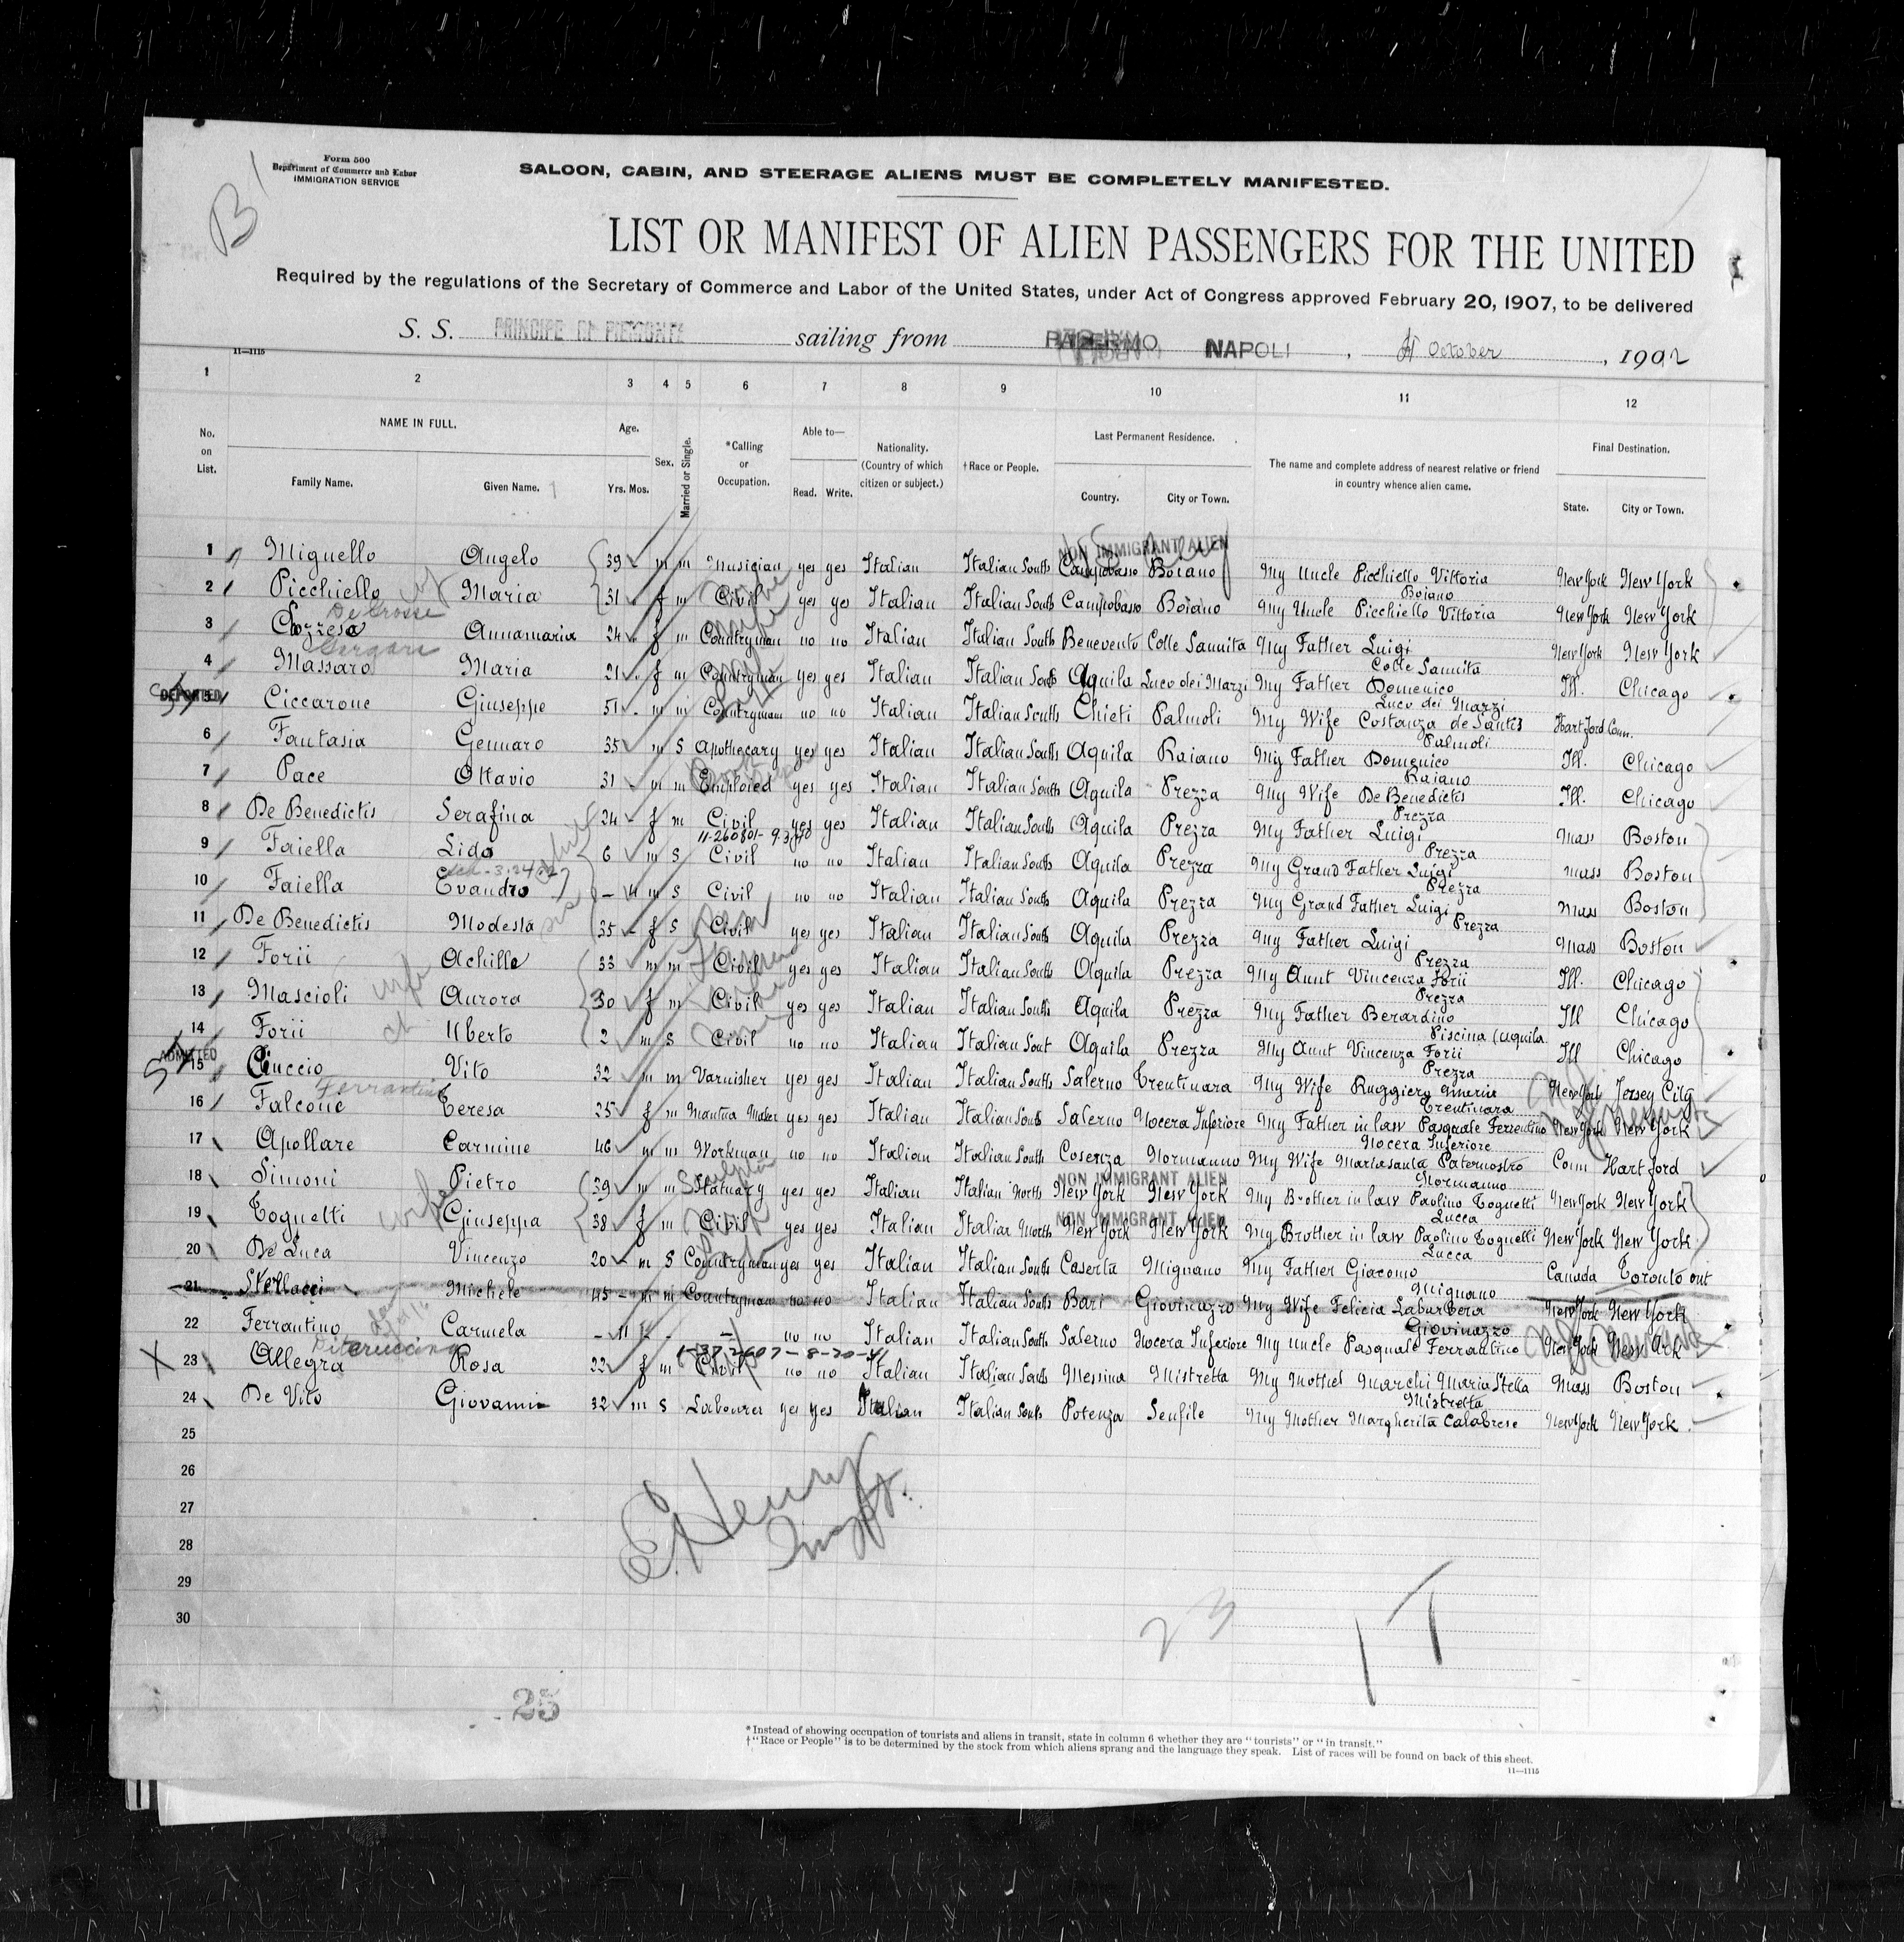 B
Form 500
Department of Commerce and Labor
IMMIGRATION SERVICE
SALOON, CABIN, AND STEERAGE ALIENS MUST BE COMPLETELY MANIFESTED.
LIST OR MANIFEST OF ALIEN PASSENGERS FOR THE UNITED
Required by the regulations of the Secretary of Commerce and Labor of the United States, under Act of Congress approved February 20, 1907, to be delivered
S. S. PRINCIPE DI PIEMONTE sailing from PALERMO NAPOLI, October, 190
11—1115
1 2 3 4 5 6 7 8 9 10 11 12
No. on List. NAME IN FULL. Family Name. Given Name. Age. Yrs. Mos. Sex. Married or Single. *Calling or Occupation. Able to— Read. Write. Nationality. (Country of which citizen or subject.) †Race or People. Last Permanent Residence. Country. City or Town. The name and complete address of nearest relative or friend in country whence alien came. Final Destination. State. City or Town.
NON IMMIGRANT ALIEN
1 Miguello Angelo 39 m m Musician yes yes Italian Italian South Campobasso Boiano My Uncle Picchiello Vittoria Boiano New York New York
2 Picchiello Maria 31 f m Civil yes yes Italian Italian South Campobasso Boiano My Uncle Picchiello Vittoria New York New York
De Grosse
3 Annamaria 24 f m Countryman no no Italian Italian South Benevento Colle Sannita My Father Luigi Colle Sannita New York New York
4 Massaro Maria 21 f m Countryman yes yes Italian Italian South Aquila Luco dei Marzi My Father Domenico Luco dei Marzi Ill. Chicago
DEPORTED
5 Ciccarone Giuseppe 51 m m Countryman no no Italian Italian South Chieti Palmoli My Wife Costanza de Santis Palmoli Hartford Conn.
6 Fantasia Gennaro 35 m S Apothecary yes yes Italian Italian South Aquila Raiano My Father Domenico Raiano Ill. Chicago
7 Pace Ottavio 31 m m Emploied yes yes Italian Italian South Aquila Prezza My Wife De Benedictis Prezza Ill. Chicago
8 De Benedictis Serafina 24 f m Civil yes yes Italian Italian South Aquila Prezza My Father Luigi Prezza Mass Boston
9 Faiella Lido 6 m S Civil no no Italian Italian South Aquila Prezza My Grand Father Luigi Prezza Mass Boston
10 Faiella Evandro - 4 m S Civil no no Italian Italian South Aquila Prezza My Grand Father Luigi Prezza Mass Boston
11 De Benedictis Modesta 35 f S Civil yes yes Italian Italian South Aquila Prezza My Father Luigi Prezza Mass Boston
12 Forii Achille 33 m m Civil yes yes Italian Italian South Aquila Prezza My Aunt Vincenza Forii Prezza Ill. Chicago
13 Mascioli wife Aurora 30 f m Civil yes yes Italian Italian South Aquila Prezza My Father Berardino Piscina (Aquila Ill Chicago
14 Forii ch Uberto 2 m S Civil no no Italian Italian Sout Aquila Prezza My Aunt Vincenza Forii Prezza Ill Chicago
ADMITTED
15 Ciuccio Vito 32 m m Varnisher yes yes Italian Italian South Salerno Trentinara My Wife Ruggiero Trentinara New York Jersey City
16 Falcone Teresa 25 f m Mantua Maker yes yes Italian Italian South Salerno Nocera Inferiore My Father in law Pasquale Ferrentino Nocera Inferiore New York New York
17 Apollare Carmine 46 m m Workman no no Italian Italian South Cosenza Normanno My Wife Mariasanta Paternostro Normanno Conn Hartford
NON IMMIGRANT ALIEN
18 Simoni Pietro 39 m m Statuary yes yes Italian Italian North New York New York My Brother in law Paolino Tognetti Lucca New York New York
NON IMMIGRANT ALIEN
19 Tognetti wife Giuseppa 38 f m Civil yes yes Italian Italian North New York New York My Brother in law Paolino Tognetti Lucca New York New York
20 De Luca Vincenzo 20 m S Countryman yes yes Italian Italian South Caserta Mignano My Father Giacomo Mignano Canada Toronto ont
21 Stellacci Michele 45 m m Countryman no no Italian Italian South Bari Giovinazzo My Wife Felicia Labarbera Giovinazzo New York New York
22 Ferrantino Carmela - 11 f - - no no Italian Italian South Salerno Nocera Inferiore My Uncle Pasquale Ferrantino New York New York
1-37-2607-8-20-41
23 Allegra Rosa 22 f m Civil no no Italian Italian South Messina Mistretta My Mother Marchi Maria Stella Mistretta Mass Boston
24 De Vito Giovanni 32 m S Labourer yes yes Italian Italian South Potenza Senfile My Mother Margherita Calabrese New York New York
25
26
27
28
29
30
E. Henry
Inspt.
23
1T
25
*Instead of showing occupation of tourists and aliens in transit, state in column 6 whether they are "tourists" or "in transit."
†"Race or People" is to be determined by the stock from which aliens sprang and the language they speak. List of races will be found on back of this sheet.
11—1115